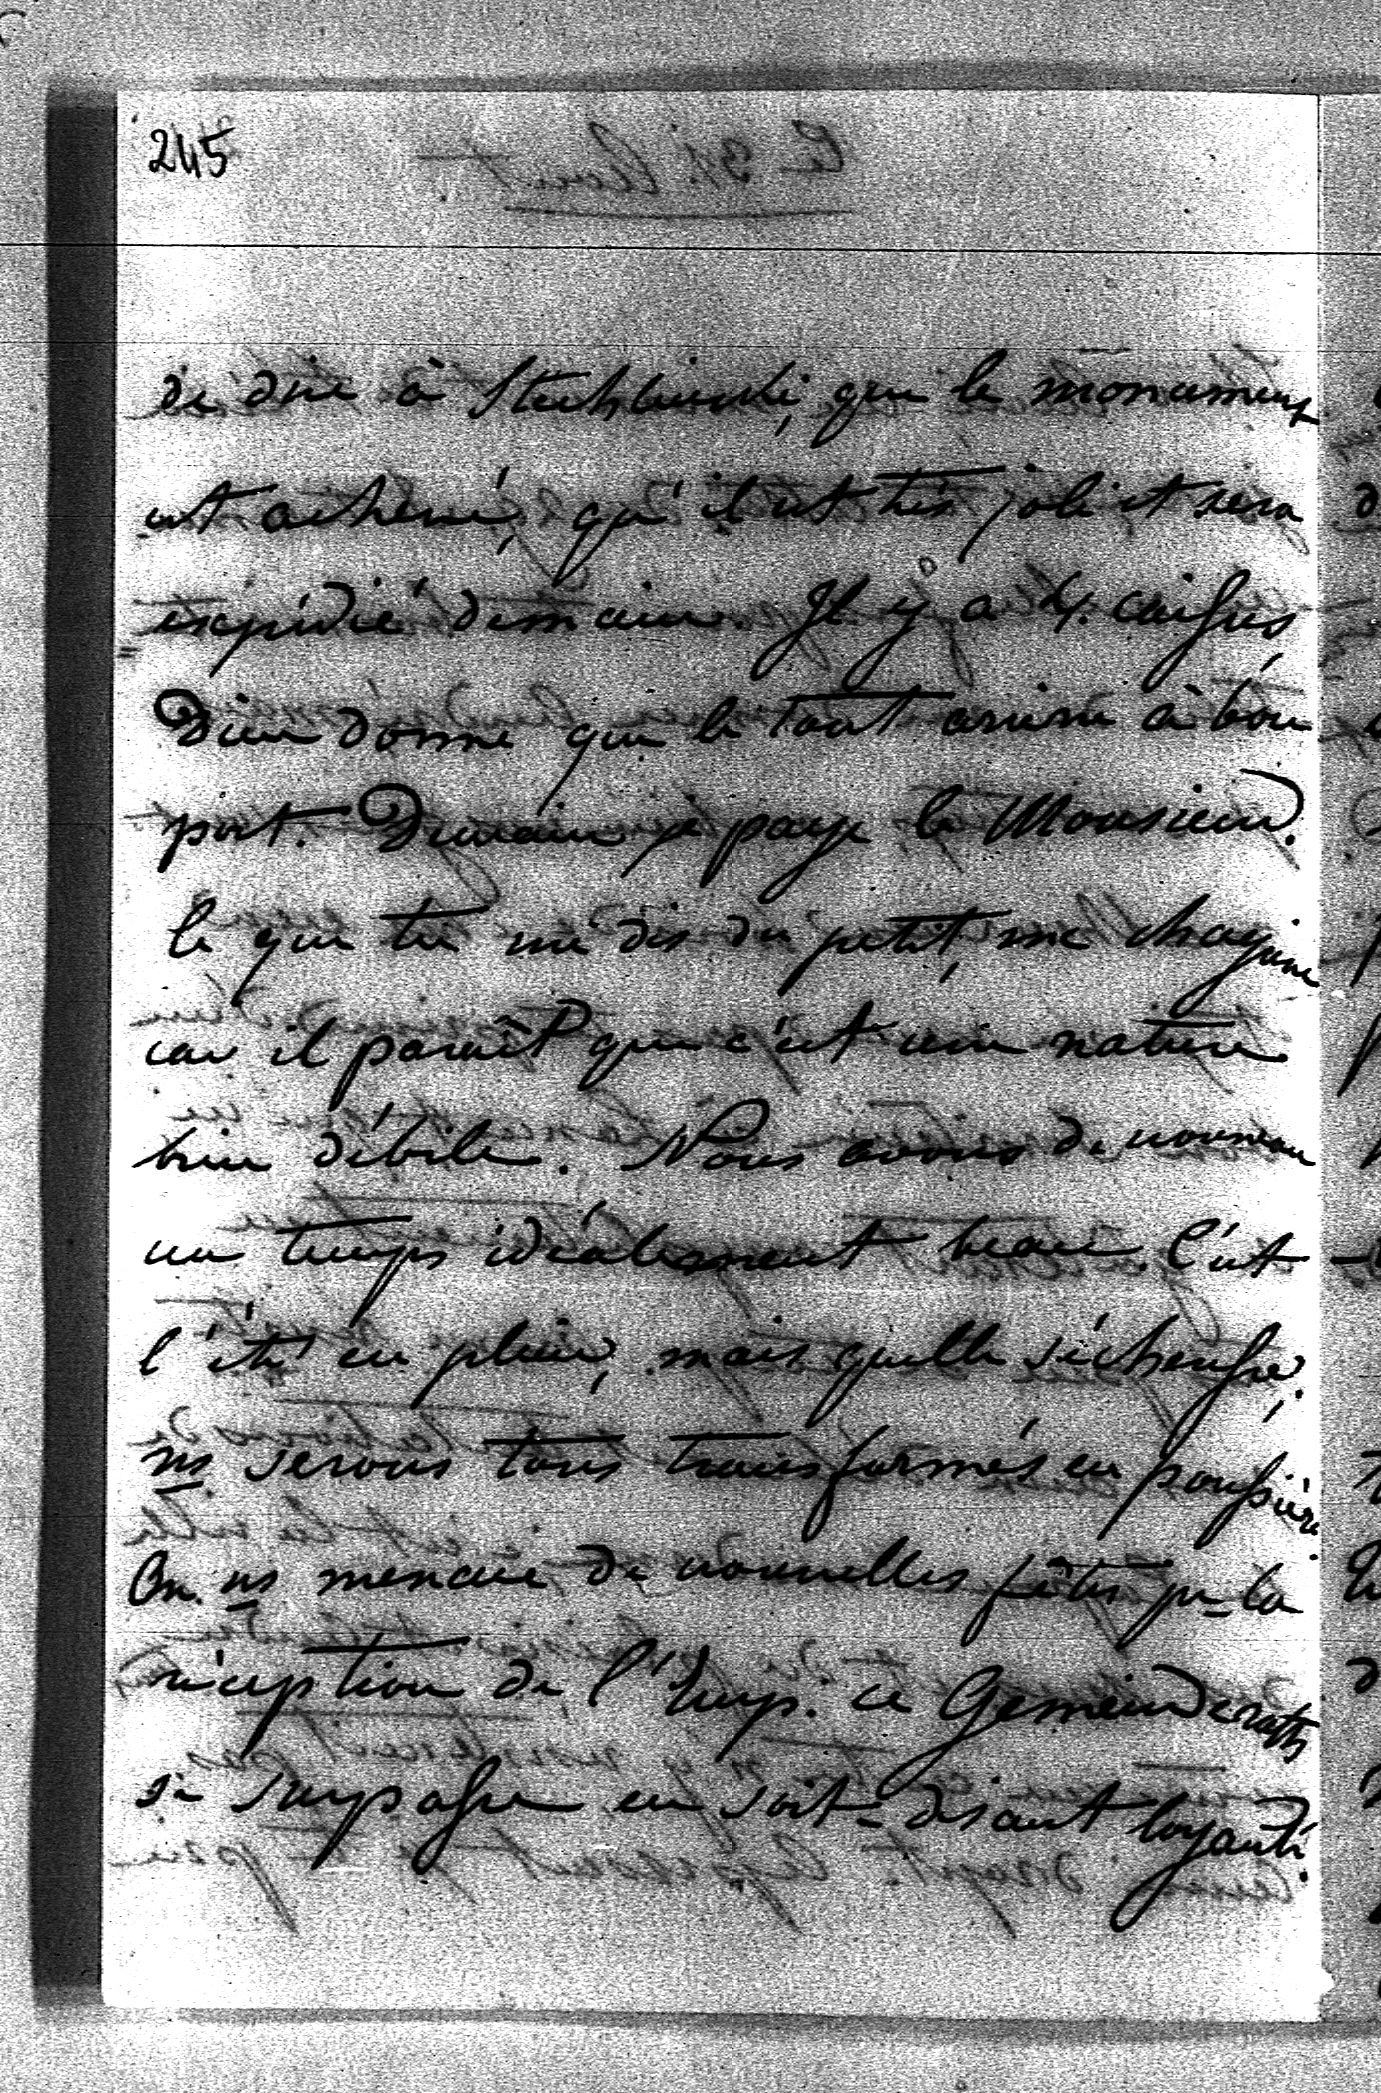 245
de dire à que le monument
est achevé, qu'il est très joli et sera
expédié demain. Il y a 4 caisses
Dieu donne que le tout arrive à bon
port. Demain je paye le Monsieur.
Ce que tu me dis du petit, me chagrine
car il paraît que c'est une nature
bien débile. Nous avons de nouveau
un temps idéalement beau. C'est
l'été en plein, mais quelle sécheresse,
ns serons tous transformés en poussière
On ns menace de nouvelles fêtes pr la
réception de l'Emp. ce Gemeinderath
se surpasse en soit-disant loyauté.